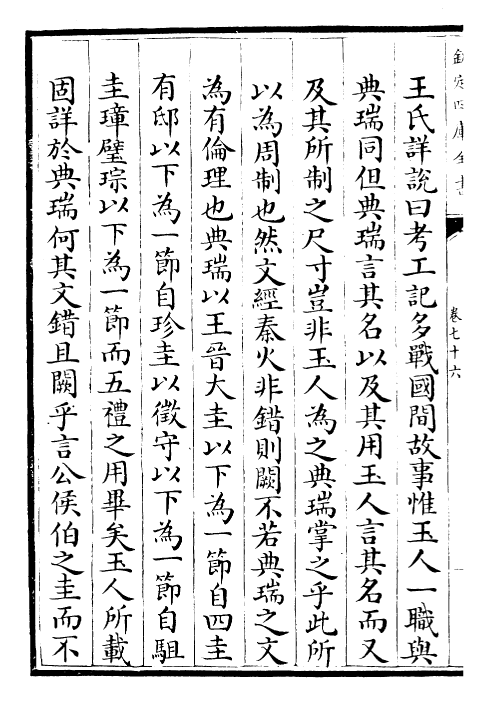 欽定四庫全書
卷七十六
王氏詳說曰考工記多戰國間故事惟玉人一職與
典瑞同但典瑞言其名以及其用玉人言其名而又
及其所制之尺寸豈非玉人為之典瑞掌之乎此所
以為周制也然文經秦火非錯則闕不若典瑞之文
為有倫理也典瑞以王晉大圭以下為一節自四圭
有邸以下為一節自珍圭以徵守以下為一節自駔
圭璋璧琮以下為一節而五禮之用畢矣玉人所載
固詳於典瑞何其文錯且闕乎言公侯伯之圭而不